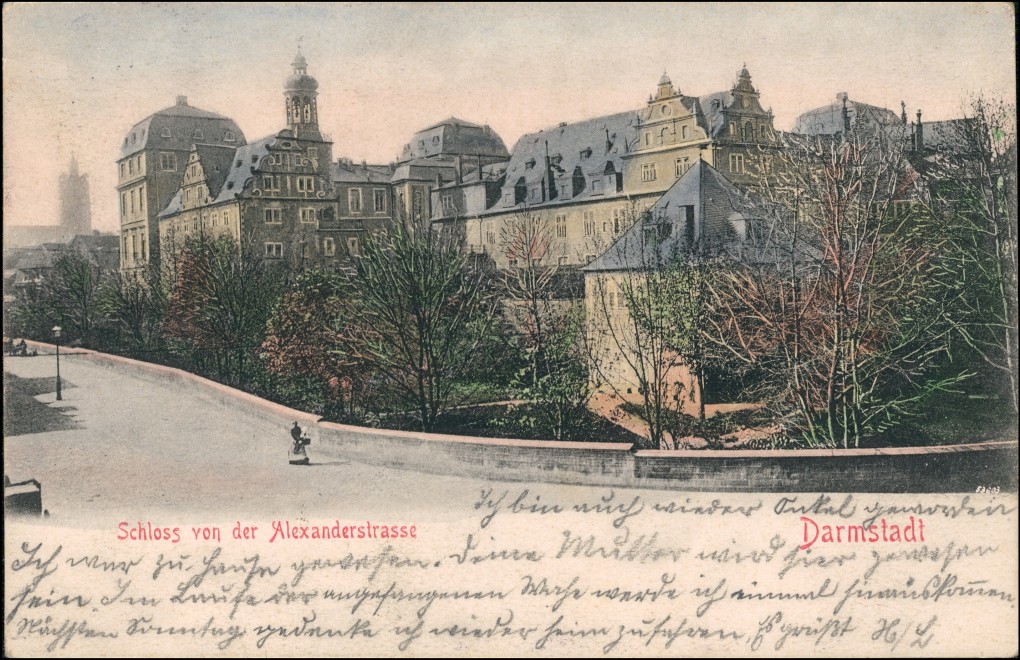 Ich bin auch wieder Onkel geworden
Schloss von der Alexanderstrasse
Darmstadt
Ich war zu Hause gewesen. Deine Mutter wird hier gewesen
sein. Im Laufe der angefangenen Woche werde ich einmal hinauskommen.
Nächsten Sonntag gedenke ich wieder heim zu fahren. Es grüßt